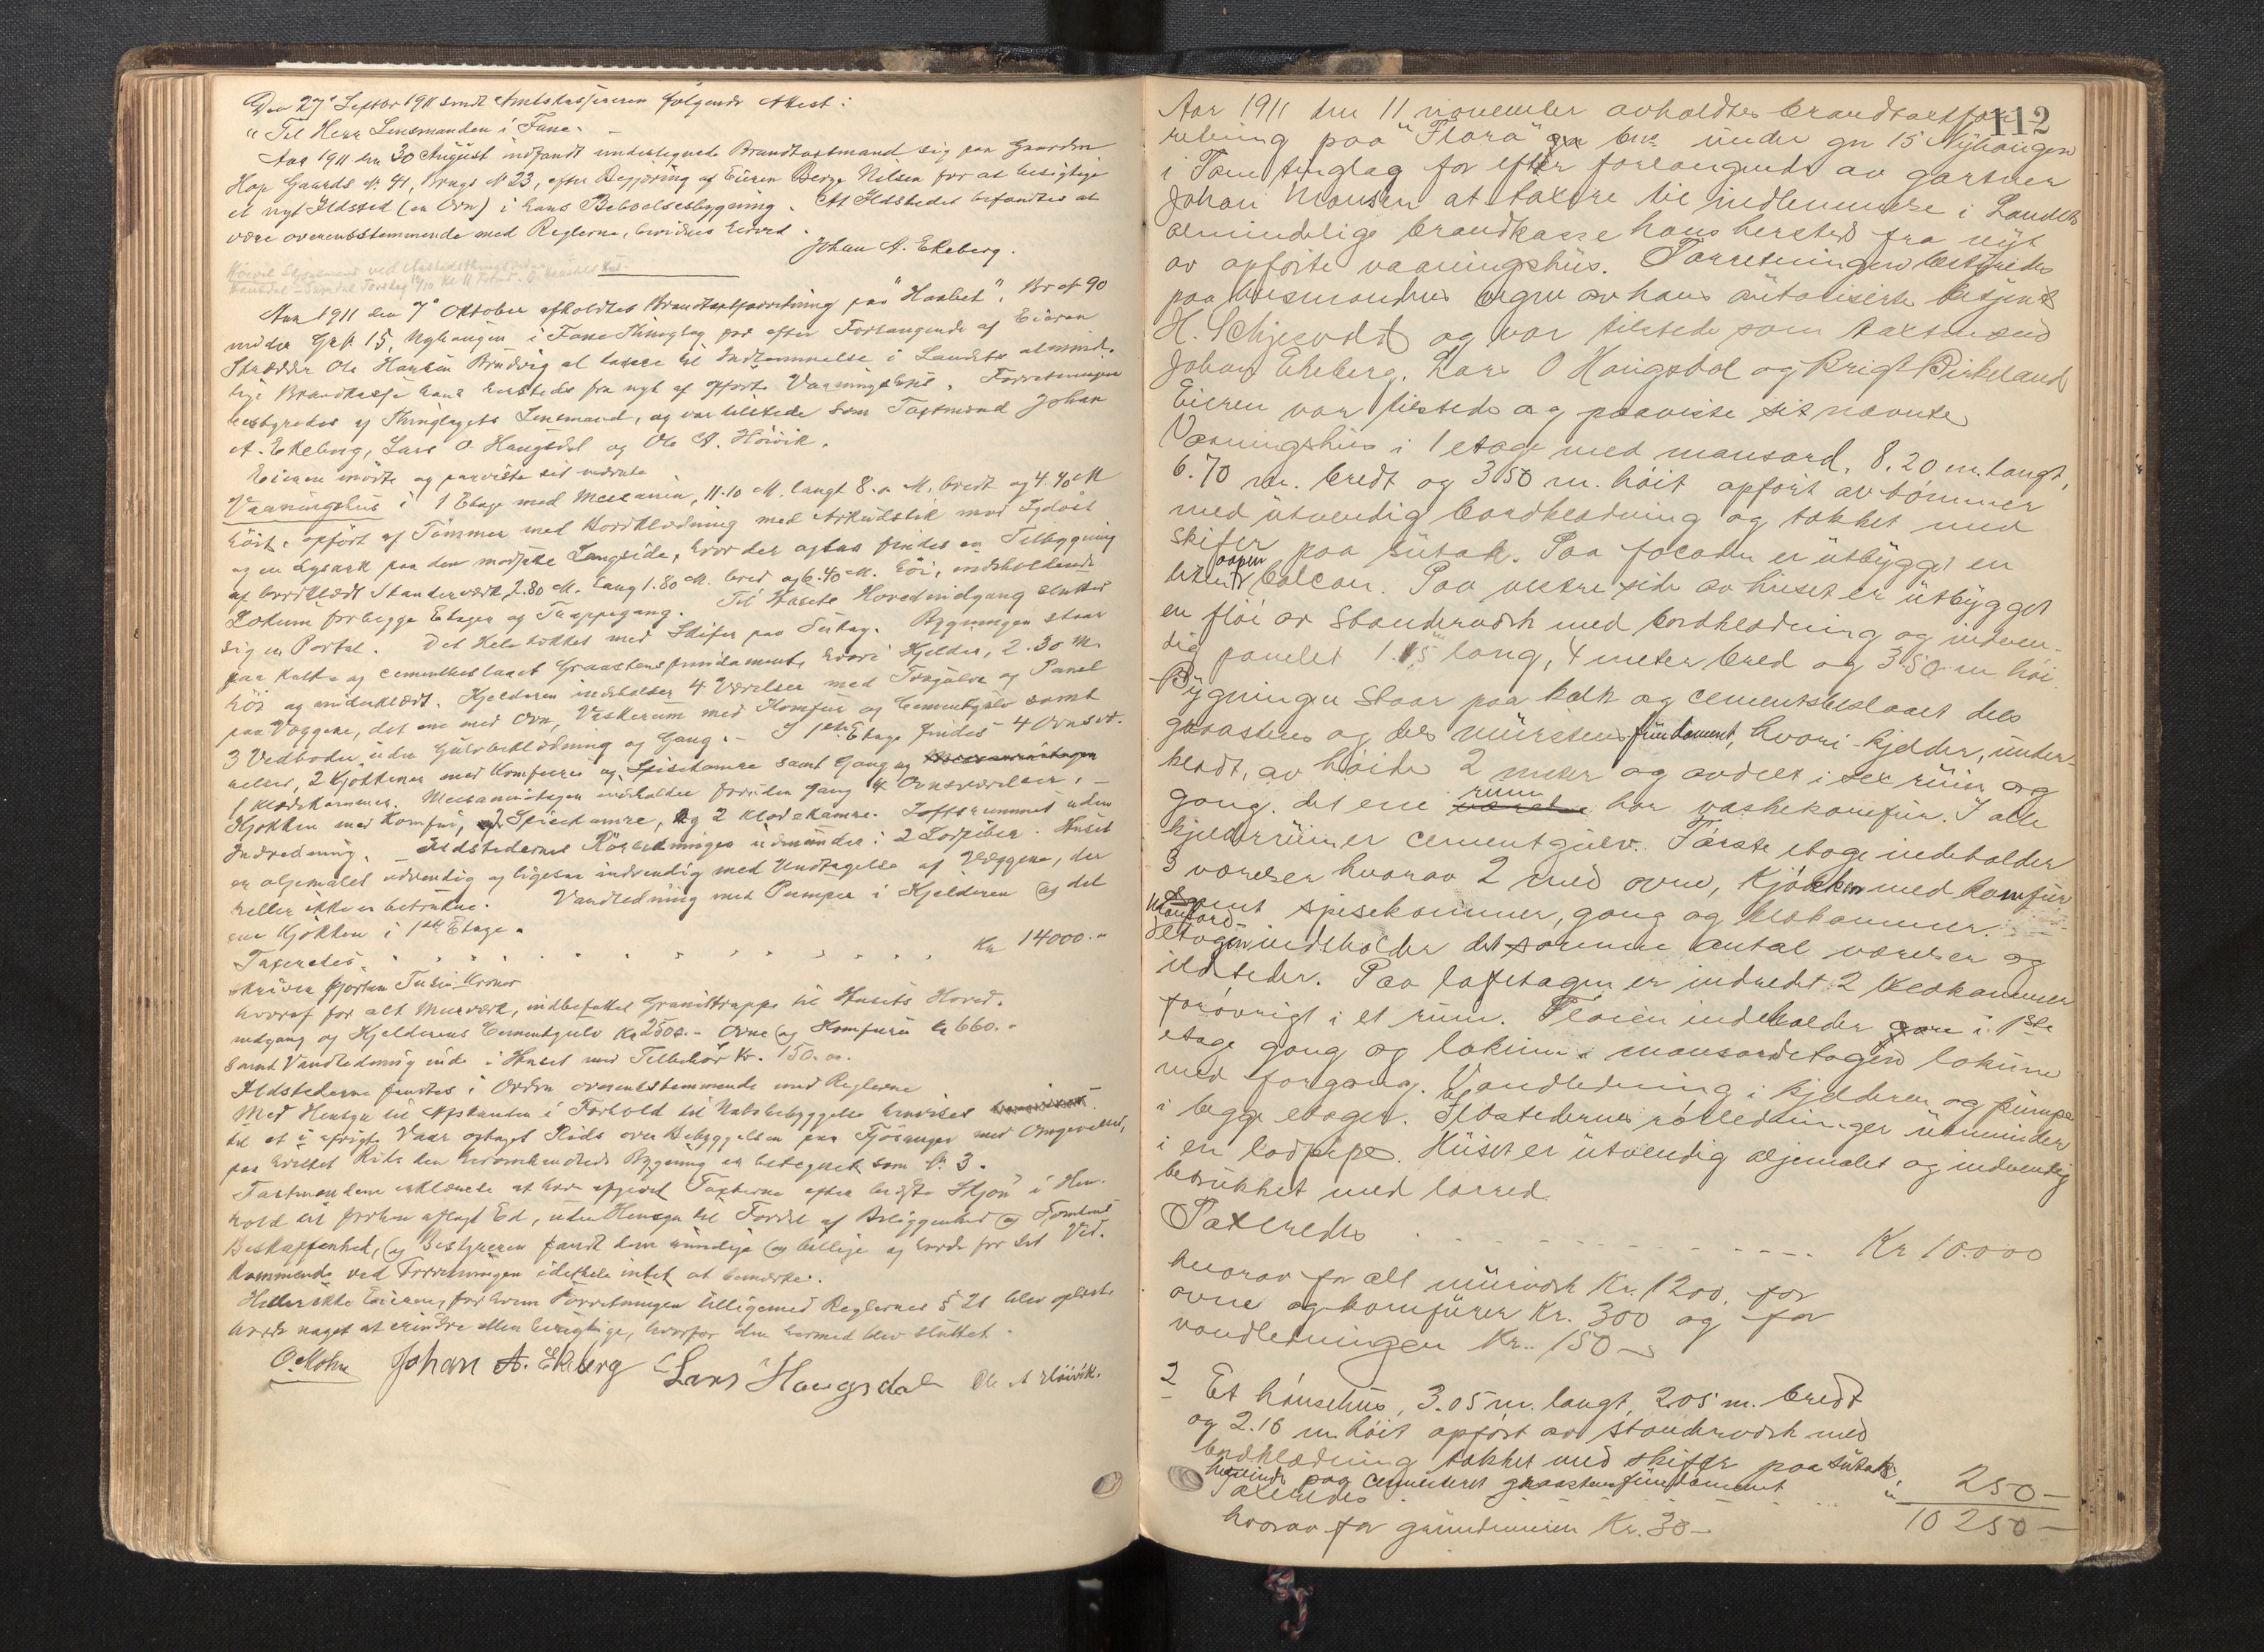 Den 27' Septbr 1911 sendt Amtskassereren følgende Attest:
"Til Herr Lensmanden i Fane. —
Aar 1911 den 30 August indfandt undertegnede Brandtaxtmand sig paa Gaarden
Hop Gaards N. 41, Brugs N 23, efter Begjæring af Eieren Berge Nilsen for at besigtige
et nyt Ildsted (en Ovn) i hans Beboelsesbygning. At Ildstedet befandtes at
være overensstemmende med Reglerne, bevidnes herved.
Johan A. Ekeberg.
Aar 1911 den 7' Oktober afholdtes Brandtaxtforretning paa "Haabet", Br. N 90
under GrN. 15, Nyhaugen i Fane Thinglag for efter Forlangende af Eieren
Skrædder Ole Hansen Brudvig at taxere til Indlemmelse i Landets alminde-
lige Brandkasse hans hersteds fra nyt af opførte Vaaningshus. Forretningen
bestyredes af Thinglagets Lensmand, og var tilstede som Taxtmænd Johan
A. Ekeberg, Lars O. Haugsdal og Ole A. Høivik.
Eieren mødte og paaviste sit nævnte
Vaaningshus i 1 Etage med Mezzanin, 11.10 M. langt 8.0 M. bredt og 4.40 M
høit, opført af Tømmer med Bordklædning med Arkudstik mod Sydøst
og en Lysark paa den modsatte Langside, hvor der ogsaa findes en Tilbygning
af bordklædt Standerværk, 2.80 M. lang 1.80 M. bred og 6.40 M. høi, indeholdende
Lokum for begge Etager og Trappegang. Til Husets Hovedindgang slutter
sig en Portal. Det Hele tækket med Skifer paa Sutag. Bygningen staar
paa Kalk- og cementbeslaaet Graastensfundament, hvori Kjelder, 2.30 M.
høi og underklædt. Kjelderen indeholder 4 Værelser med Trægulve og Panel
paa Væggene, det ene med Ovn, Vaskerum med Komfur og Cementgulv samt
3 Vedboder uden Gulvbeklædning og Gang. - I 1ste Etage findes 4 Ovnsvæ-
relser, 2 Kjøkkener med Komfurer og Spisekamre samt Gang og
1 Klædekammer. Mezzaninetagen indeholder foruden Gang 4 Ovnsværelser, -
Kjøkken med Komfur, Spisekamre, og 2 Klædekamre. Loftsrummet uden
Indredning. Ildstedernes Rørledninger udmunder i 2 Lodpiber. Huset
er oljemalet udvendig og ligesaa indvendig med Undtagelse af Væggene, der
heller ikke er betrukne. Vandledning med Pumper i Kjelderen og det
ene Kjøkken i 1ste Etage.
Taxeredes . . . . . . . . . . Kr 14000.-
skriver fjorten Tusin Kroner
hvoraf for alt Murværk, indbefattet Granittrappe til Husets Hoved-
indgang og Kjelderens Cementgulv Kr 2500.- Ovne og Komfurer Kr 660.-
samt Vandledning inde i Huset med Tilbehør Kr. 150.00.
Ildstederne fandtes i Orden overensstemmende med Reglerne
Med Hensyn til Afstanden i Forhold til Nabobebyggelse henvises
til et i afvigte Vaar optaget Rids over Bebyggelsen paa Fjøsanger med Omgivelser,
paa hvilket Rids den heromhandlede Bygning er betegnet som N. 3.
Taxtmændene erklærede at have afgivet Taxterne efter bedste Skjøn i Hen-
hold til forhen aflagt Ed, uden Hensyn til Fordel af Beliggenhed og Tomtens
Beskaffenhed, og Bestyreren fandt dem rimelige og billige og havde for sit Ved-
kommende ved Forretningen idethele intet at bemærke.
Heller ikke Eieren, for hvem Forretningen tilligemed Reglernes § 21 blev oplæst,
havde noget at erindre eller berigtige, hvorfor den hermed blev sluttet.
O. Mohn Johan A. Ekeberg Lars Haugsdal Ole A Høivik.
112
Aar 1911 den 11 november avholdtes brandtaxtfor-
retning paa "Flora" bno under gn 15 Nyhaugen
i Fane tinglag for efter forlangende av gartner
Johan Monsen at taxere til indlemmelse i Landets
almindelige brandkasse hans hersteds fra nyt
av opførte vaaningshus. Forretningen bestyredes
paa lensmandens vegne av hans autoriserte betjent
H. Schjesvold og var tilstede som taxtmænd
Johan Ekeberg, Lars O Haugsdal og Brigt Birkeland
Eieren var tilstede og paaviste sit nævnte
Vaaningshus i 1 etage med mansard, 8.20 m. langt,
6.70 m. bredt og 3.50 m. høit opført av tømmer
med utvendig bordklædning og tækket med
skifer paa sutak. Paa facaden er utbygget en
liten aapen balcon. Paa vestre side av huset er utbygget
en fløi av standerverk med bordklædning og indven-
dig panelet 1.15 m lang, 4 meter bred og 3.50 m høi.
Bygningen staar paa kalk og cementbeslaaet dels
graastens og dels murstens fundament, hvori kjelder, under-
klædt, av høide 2 meter og avdelt i sex rum og
gang. det ene rum har vaskekomfur. I alle
kjelderrum er cementgulv. Første etage indeholder
3 værelser hvorav 2 med ovne, kjøkken med komfur
samt spisekammer, gang og klækammer.
Mansard-
etagen indeholder det samme antal værelser og
ildsteder. Paa loftetagen er indredet 2 klækammer
forøvrigt i et rum. Fløien indeholder i 1ste
etage gang og lokum i mansardetagen lokum
med forgang. Vandledning i kjelderen og pumpe
i begge etager. Ildstedernes rørledninger utmunder
i en lodpipe. Huset er utvendig oljemalet og indvendig
betrukket med lærred.
Taxeredes . . . . . . . . . . Kr 10.000
hvorav for alt murverk Kr. 1200, for
ovne og komfurer Kr. 300 og for
vandledningen Kr. 150 —
2 Et hønsehus, 3.05 m. langt, 2.05 m. bredt
og 2.16 m. høit opført av standerverk med
bordklædning tækket med skifer paa sutak,
paa cementeret graastensfundament
Taxeredes . . . . . . " 250 —
hvorav for grundmuren Kr. 30 — 10 250 —